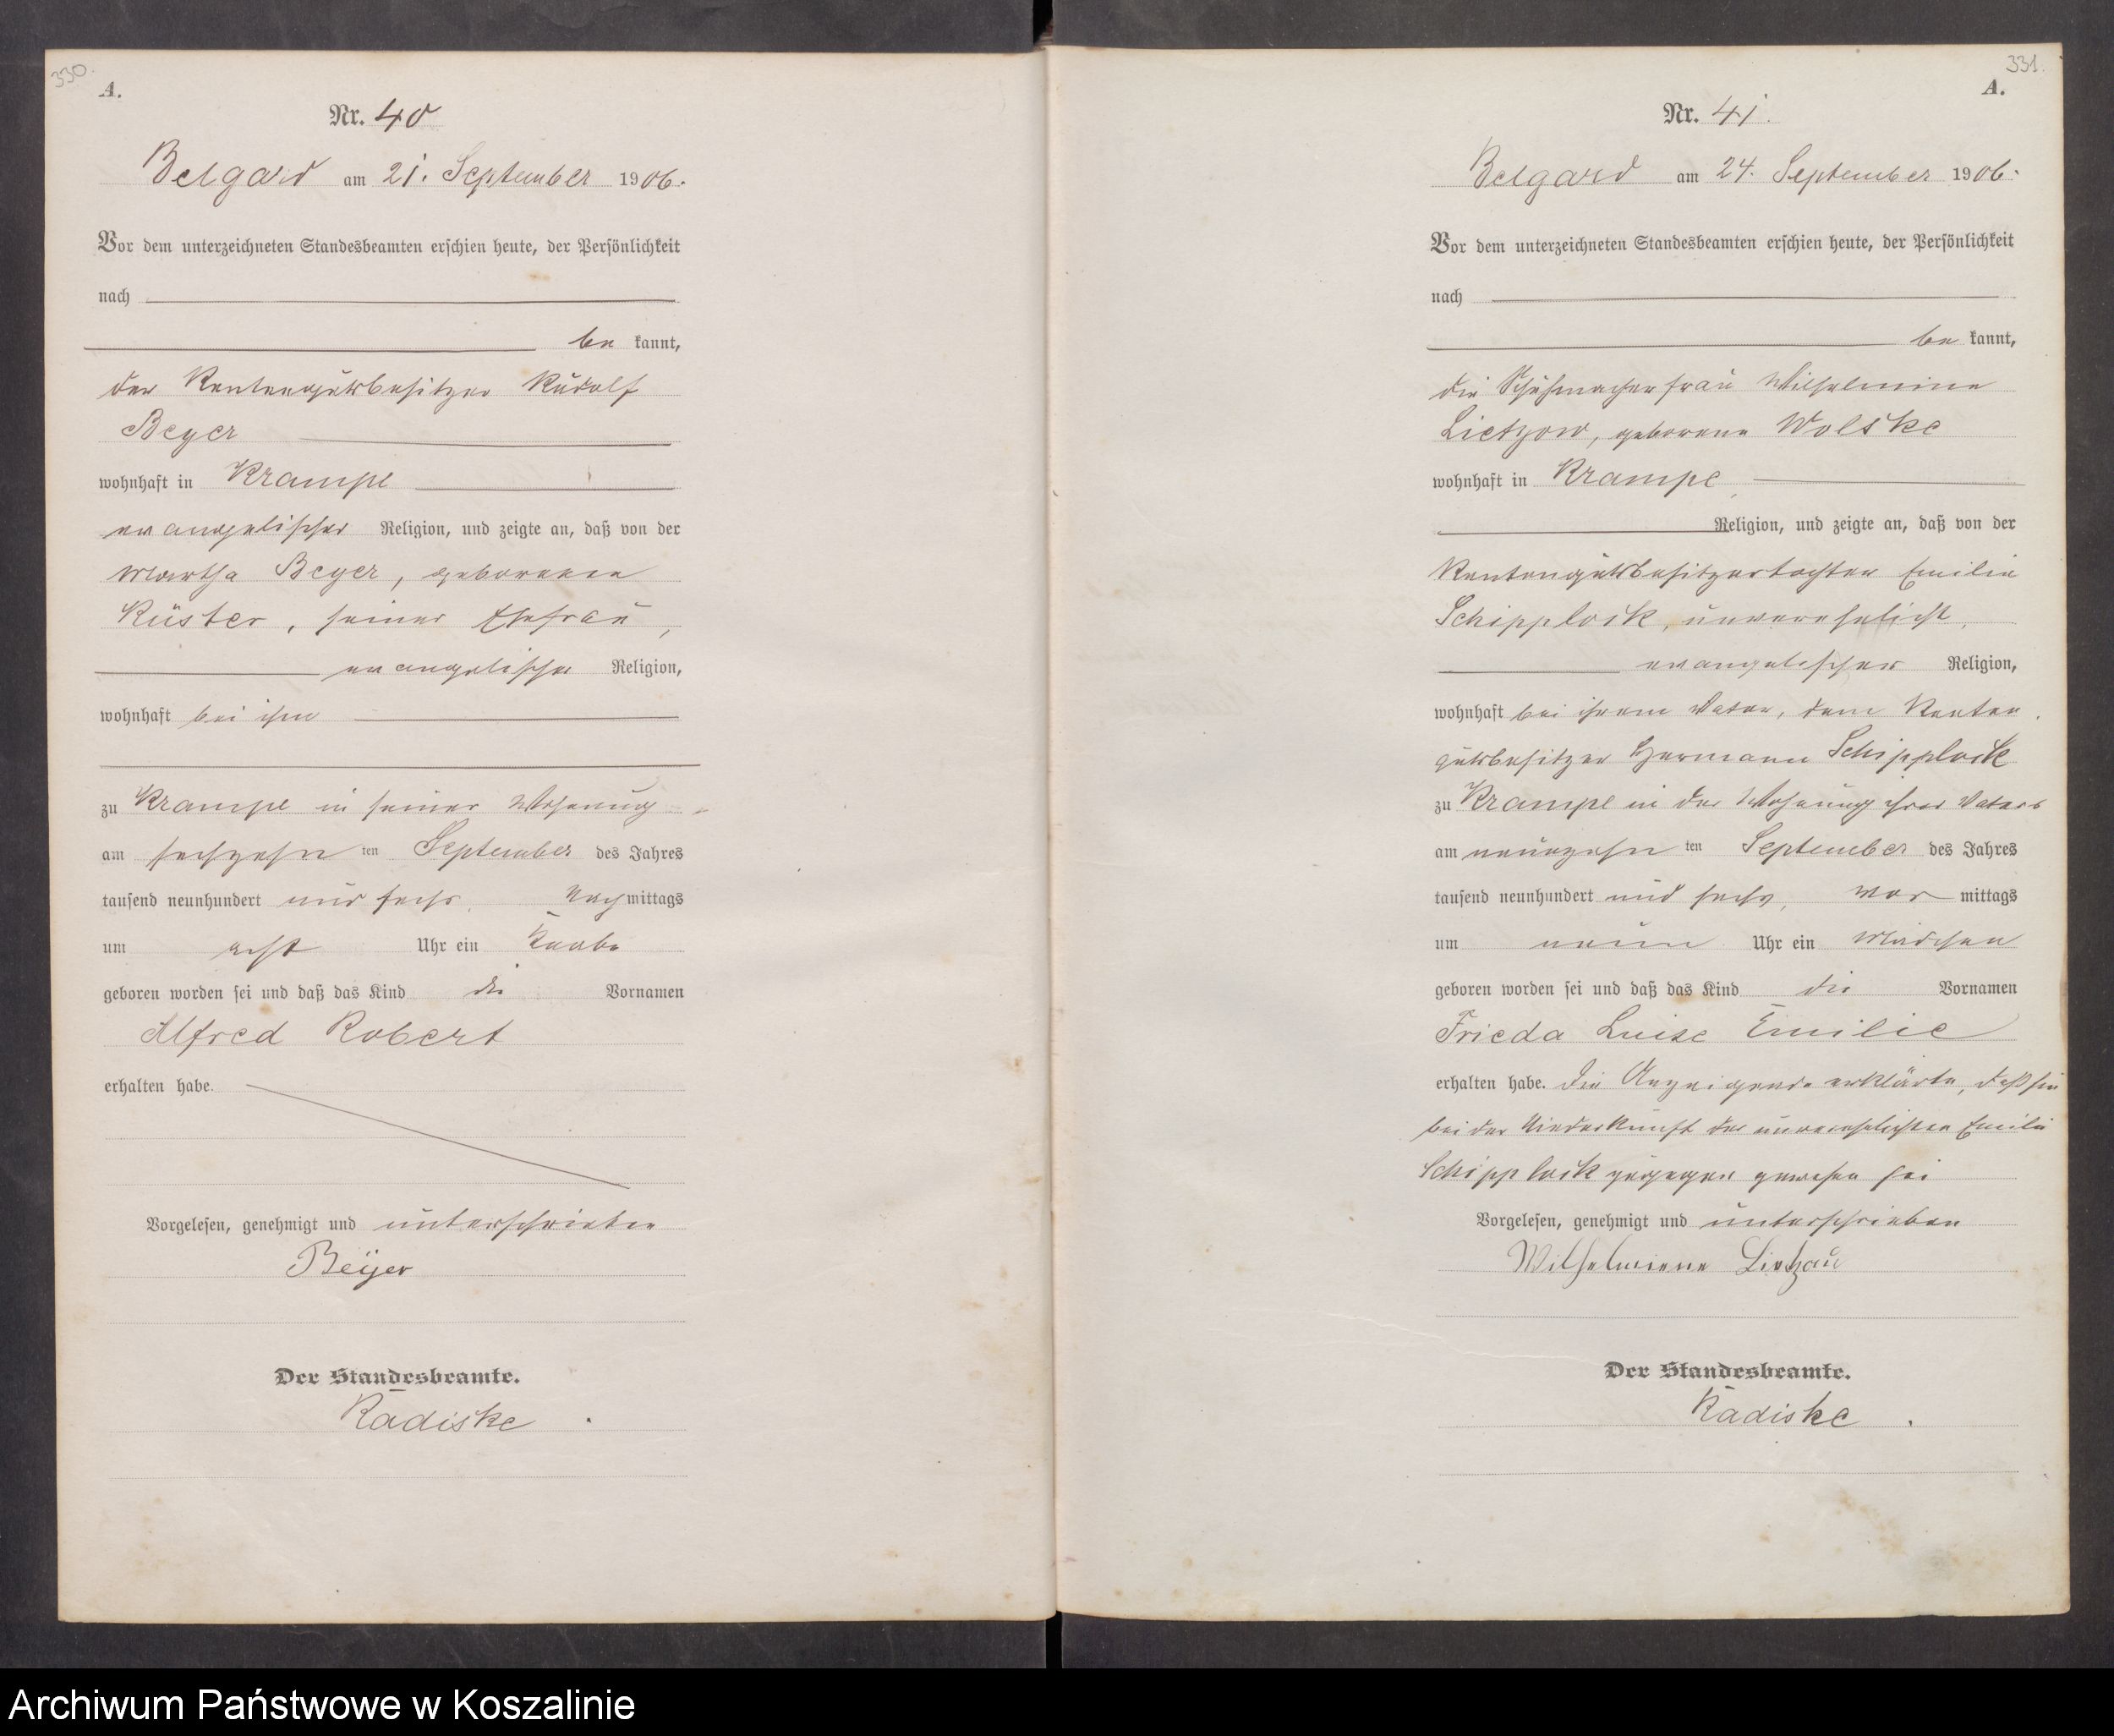 330.
A.
Nr. 40
Belgard am 21. September 1906.
Vor dem unterzeichneten Standesbeamten erschien heute, der Persönlichkeit
nach
be kannt,
der Rentengutsbesitzer Rudolf
Beyer
wohnhaft in Krampe
evangelischer Religion, und zeigte an, daß von der
Martha Beyer, geborenen
Küster, seiner Ehefrau,
evangelischer Religion,
wohnhaft bei ihm
zu Krampe in seiner Wohnung
am sechzehn ten September des Jahres
tausend neunhundert und sechs, Nach mittags
um acht Uhr ein Knabe
geboren worden sei und daß das Kind die Vornamen
Alfred Robert
erhalten habe.
Vorgelesen, genehmigt und unterschrieben
Beÿer
Der Standesbeamte.
Radiske.
331.
A.
Nr. 41.
Belgard am 24. September 1906.
Vor dem unterzeichneten Standesbeamten erschien heute, der Persönlichkeit
nach
be kannt,
die Schuhmacherfrau Wilhelmine
Lietzow, geborene Wolske
wohnhaft in Krampe,
Religion, und zeigte an, daß von der
Rentengutsbesitzertochter Emilie
Schipplock, unverehelicht,
evangelischer Religion,
wohnhaft bei ihrem Vater, dem Renten
gutsbesitzer Hermann Schipplock
zu Krampe in der Wohnung ihres Vaters
am neunzehn ten September des Jahres
tausend neunhundert und sechs, vor mittags
um neun Uhr ein Mädchen
geboren worden sei und daß das Kind die Vornamen
Frieda Luise Emilie
erhalten habe. Die Anzeigende erklärte, daß sie
bei der Niederkunft der unverehelichten Emilie
Schipplock zugegen gewesen sei
Vorgelesen, genehmigt und unterschrieben
Wilhelmiene Lietzau
Der Standesbeamte.
Radiske.
Archiwum Państwowe w Koszalinie